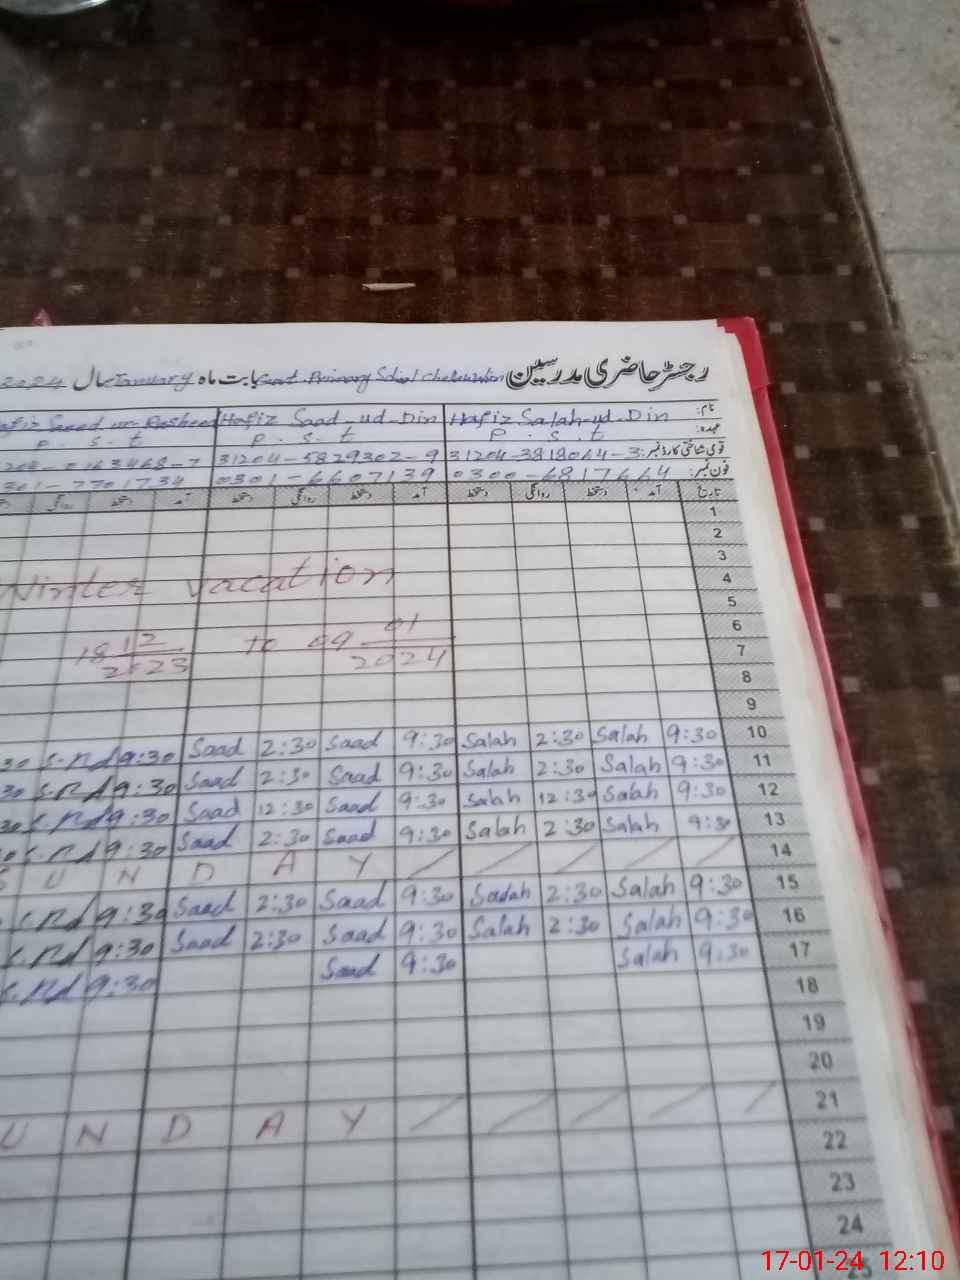 رجسٹر حاضری مدرسین Govt. Primary School بابت ماہ January سال 2024
نام: Hafiz Salah-ud-Din Hafiz Saad-ud-Din Hafiz Saeed ur Rasheed
عہدہ: P.S.T P.S.T P.S.T
قومی شناختی کارڈ نمبر: 31204-3818064-3 31204-5829302-9
فون نمبر: 0300-6817664 0301-6607139 301-7701734
تاریخ آمد دستخط روانگی دستخط آمد دستخط روانگی دستخط آمد دستخط روانگی
1
2
3
Winter vacation 4
5
6
18 12/2023 to 09 01/2024 7
8
9
30 S.Rd 9:30 Saad 2:30 Saad 9:30 Salah 2:30 Salah 9:30 10
30 S.Rd 9:30 Saad 2:30 Saad 9:30 Salah 2:30 Salah 9:30 11
30 S.Rd 9:30 Saad 12:30 Saad 9:30 Salah 12:30 Salah 9:30 12
S.Rd 9:30 Saad 2:30 Saad 9:30 Salah 2:30 Salah 9:30 13
S U N D A Y 14
S.Rd 9:30 Saad 2:30 Saad 9:30 Salah 2:30 Salah 9:30 15
S.Rd 9:30 Saad 2:30 Saad 9:30 Salah 2:30 Salah 9:30 16
S.Rd 9:30 Saad 9:30 Salah 9:30 17
18
19
20
U N D A Y 21
22
23
24
25
17-01-24 12:10